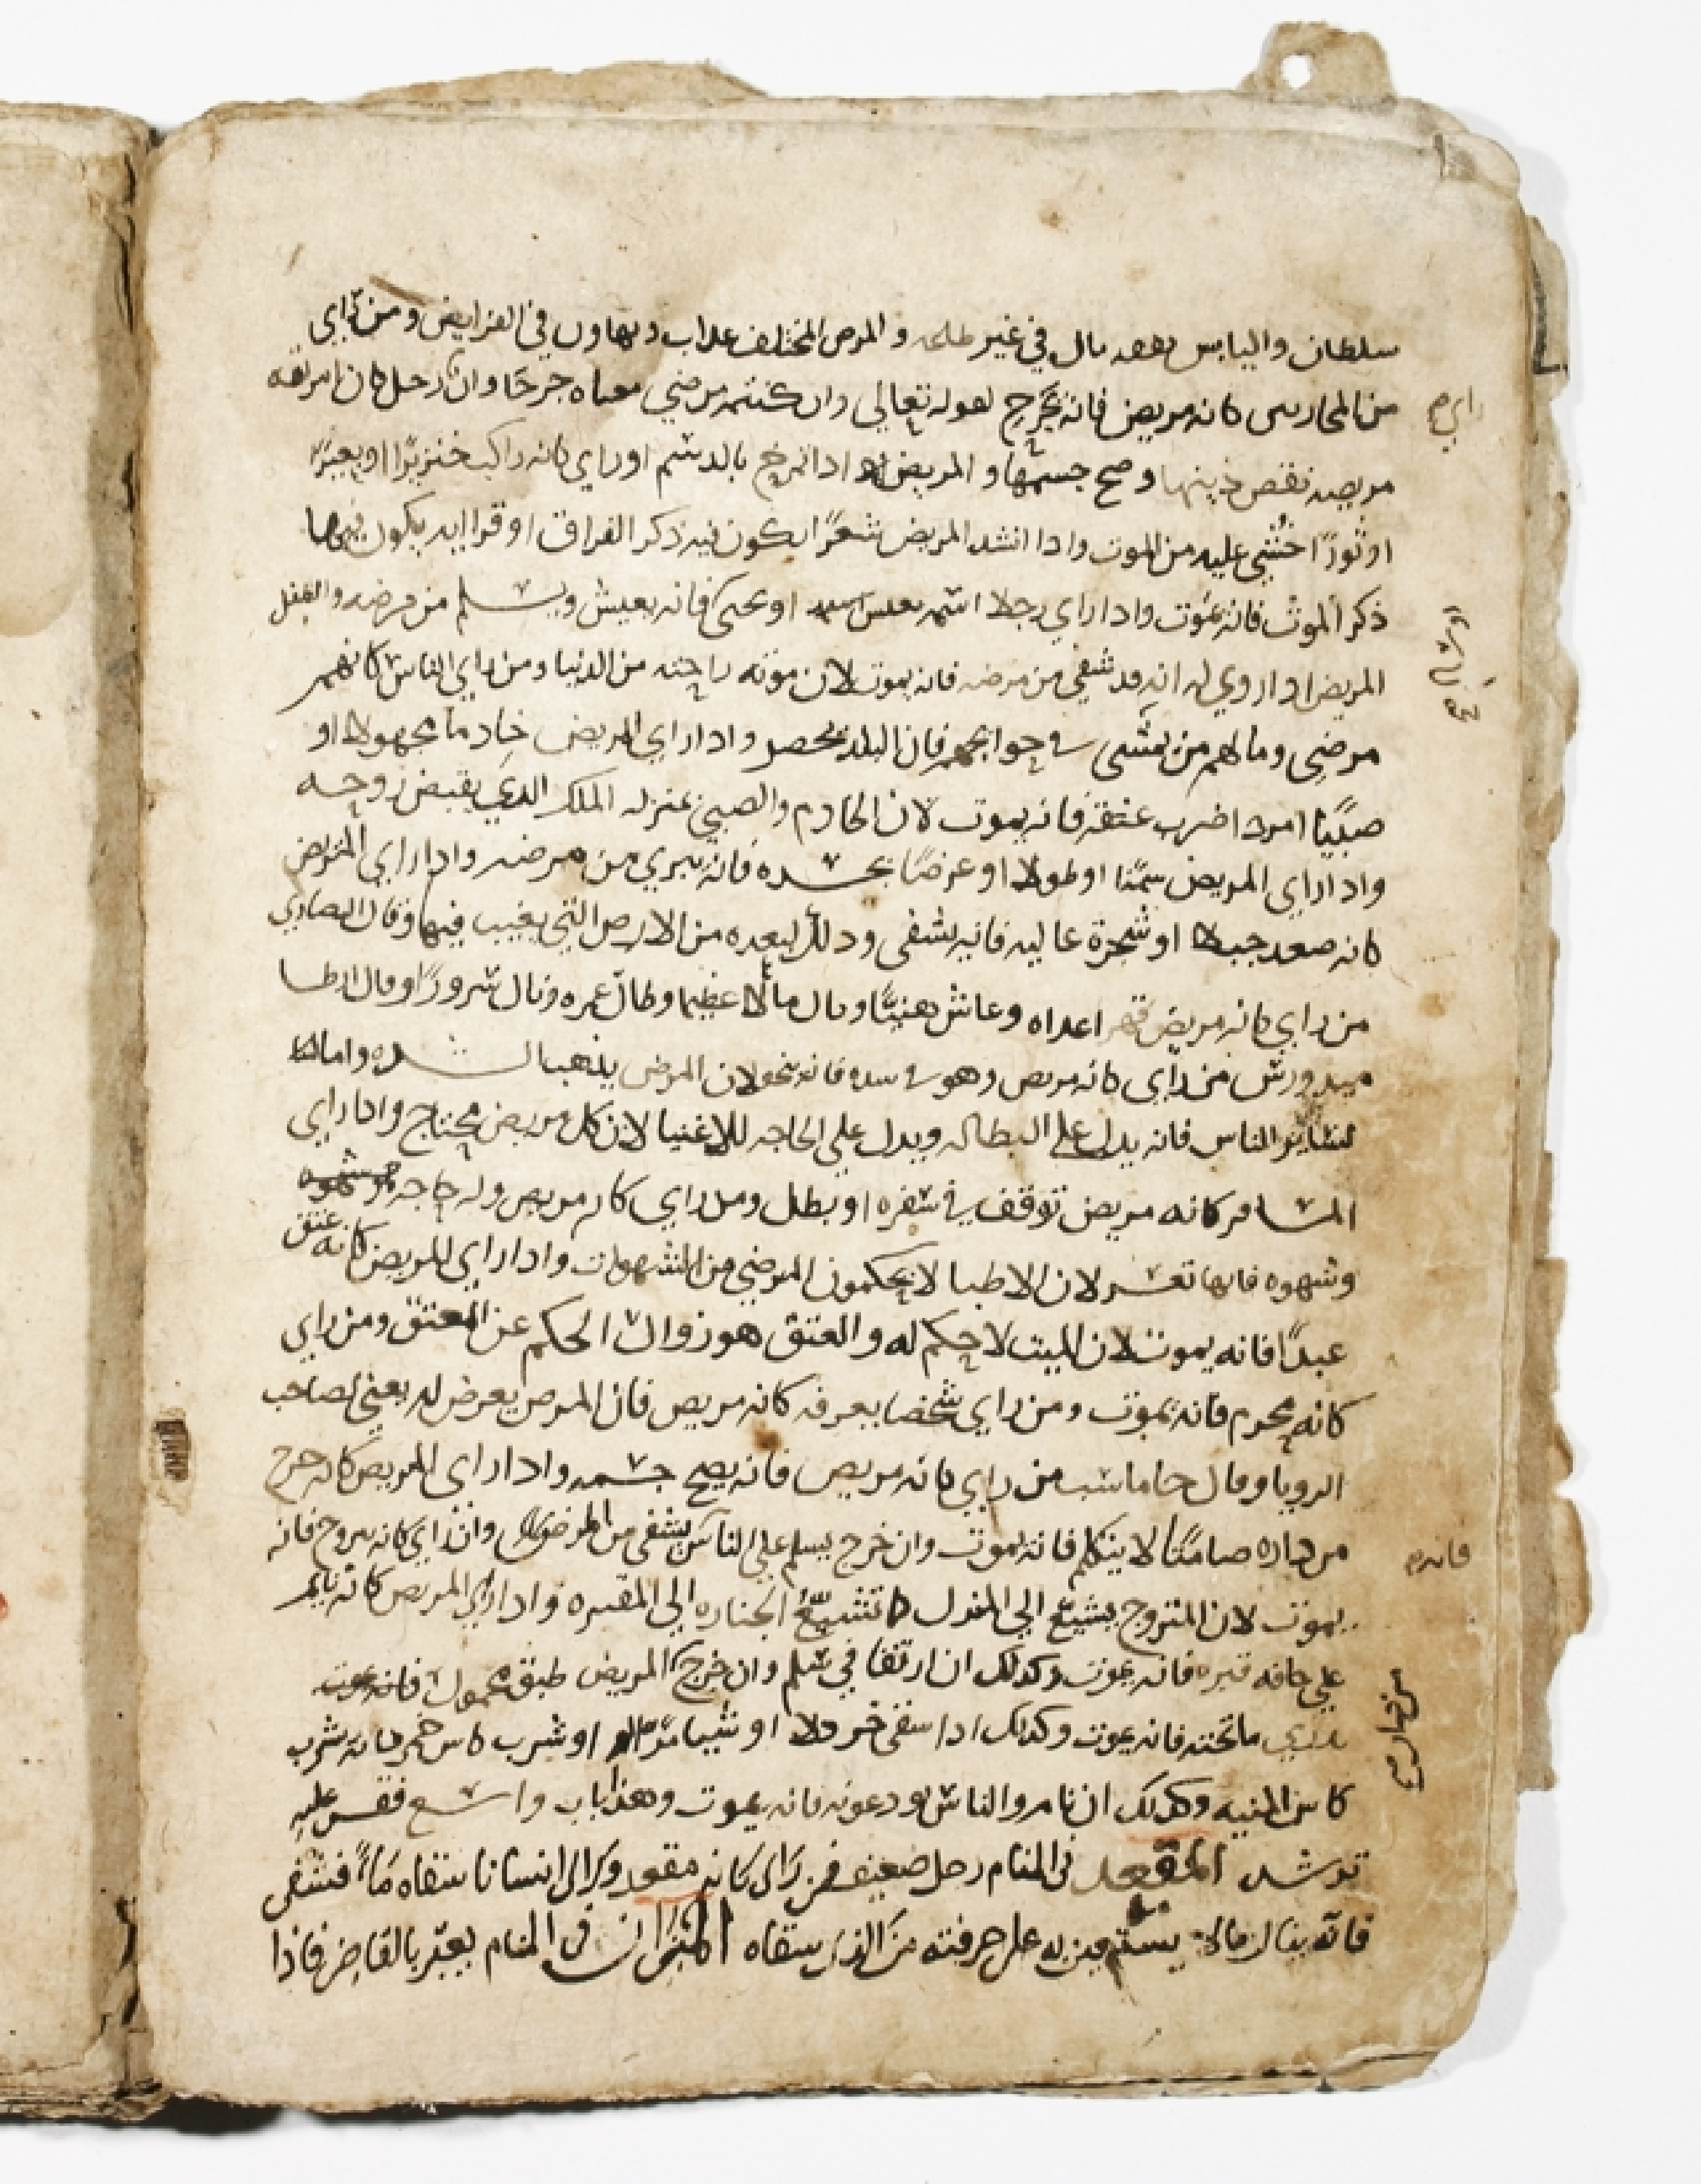 سلطان واليابس نفقه مال في غير طاعه والمرض المختلف عداب وتهاون في الفرايض ومن راي
من المحاربين كانه مريض فانه يجرح لقوله تعالي وان كنتم مرضي معناه جرحا وان راي رجل كان امراته
مريضه نقص دينها وصح جسمها والمريض اذا تمرغ بالدسم او راي كانه راكب خنزيرًا او بعيرًا
او ثورًا خشي عليه من الموت وادا انشد المريض شعرًا يكون فيه ذكر الفراق او قرا ايه يكون فيها
ذكر الموت فانه يموت وادا راي رجلا اسمه يعيش او يحيى فانه يعيش ويسلم من مرضه
المريض اذا روي له انه قد شفي من مرضه فانه يموت لان موته راحته من الدنيا ومن راي الناس كانهم
مرضي ومالهم من يمشي في حوايجهم فان البلد تحصر وادا راي المريض خادما مجهولا او
صبيًا امرد اضرب عنقه فانه يموت لان الخادم والصبي بمنزله الملك الدي يقبض روحه
وادا راي المريض سمنًا او طولا او عرضًا بجسده فانه يبري من مرضه وادا راي المريض
كانه صعد جبلا او شجرة عاليه فانه يشفى ودلك لبعده من الارض التي يغيب فيها وقال النصاري
من راي كانه مريض قهر اعداه وعاش هنيًا ونال مالا عظيما وطال عمره ونال سرورًا وقال
من راي كانه مريض وهو في شده فانه ينجو لان المرض يذهب الشده واما
لساير الناس فانه يدل علي البطاله ويدل علي الحاجه للاغنيا لان كل مريض محتاج وادا راي
المسافر كانه مريض توقف في سفره او بطل ومن راي كانه مريض وله حاجه
وشهوه فانها تعسر لان الاطبا لا يحكمون المرضي من الشهوات وادا راي المريض كانه عتق
عبدًا فانه يموت لان الميت لا حكم له والعتق هو زوال الحكم عن المعتق ومن راي
كانه محرم فانه يموت ومن راي شخصا يعرفه كانه مريض فان المرض يعرض له يعني لصاحب
الرويا وقال جاماسب من راي كانه مريض فانه يصح جسمه وادا راي المريض كانه خرج
من داره صامتًا لا يتكلم فانه يموت وان خرج يسلم علي الناس يشفي من المرض وان راي كانه تزوج فانه
يموت لان المتزوج يشيع الي المنزل كما تشيع الجنازه الي المقبره وادا راي المريض كانه نايم
علي حافه قبره فانه يموت وكدلك ان ارتقا في سلم وان خرج المريض طبق محمول فانه يموت
ما تحته فانه يموت وكدلك ادا سقي خردلا او شيا مرًا او شرب كاس خمر فانه شرب
كاس المنيه وكدلك ان نام والناس يودعونه فانه يموت وهذا باب واسع فقس عليه
ترشد المقعد في المنام رجل ضعيف فمن راى كانه مقعد وراى انسانا سقاه ماءً فشفي
فانه ينال مالا يستعين به علي حرفته من الذي سقاه الميزان في المنام يعبر بالقاضي فاذا
راي
من داره
فانده